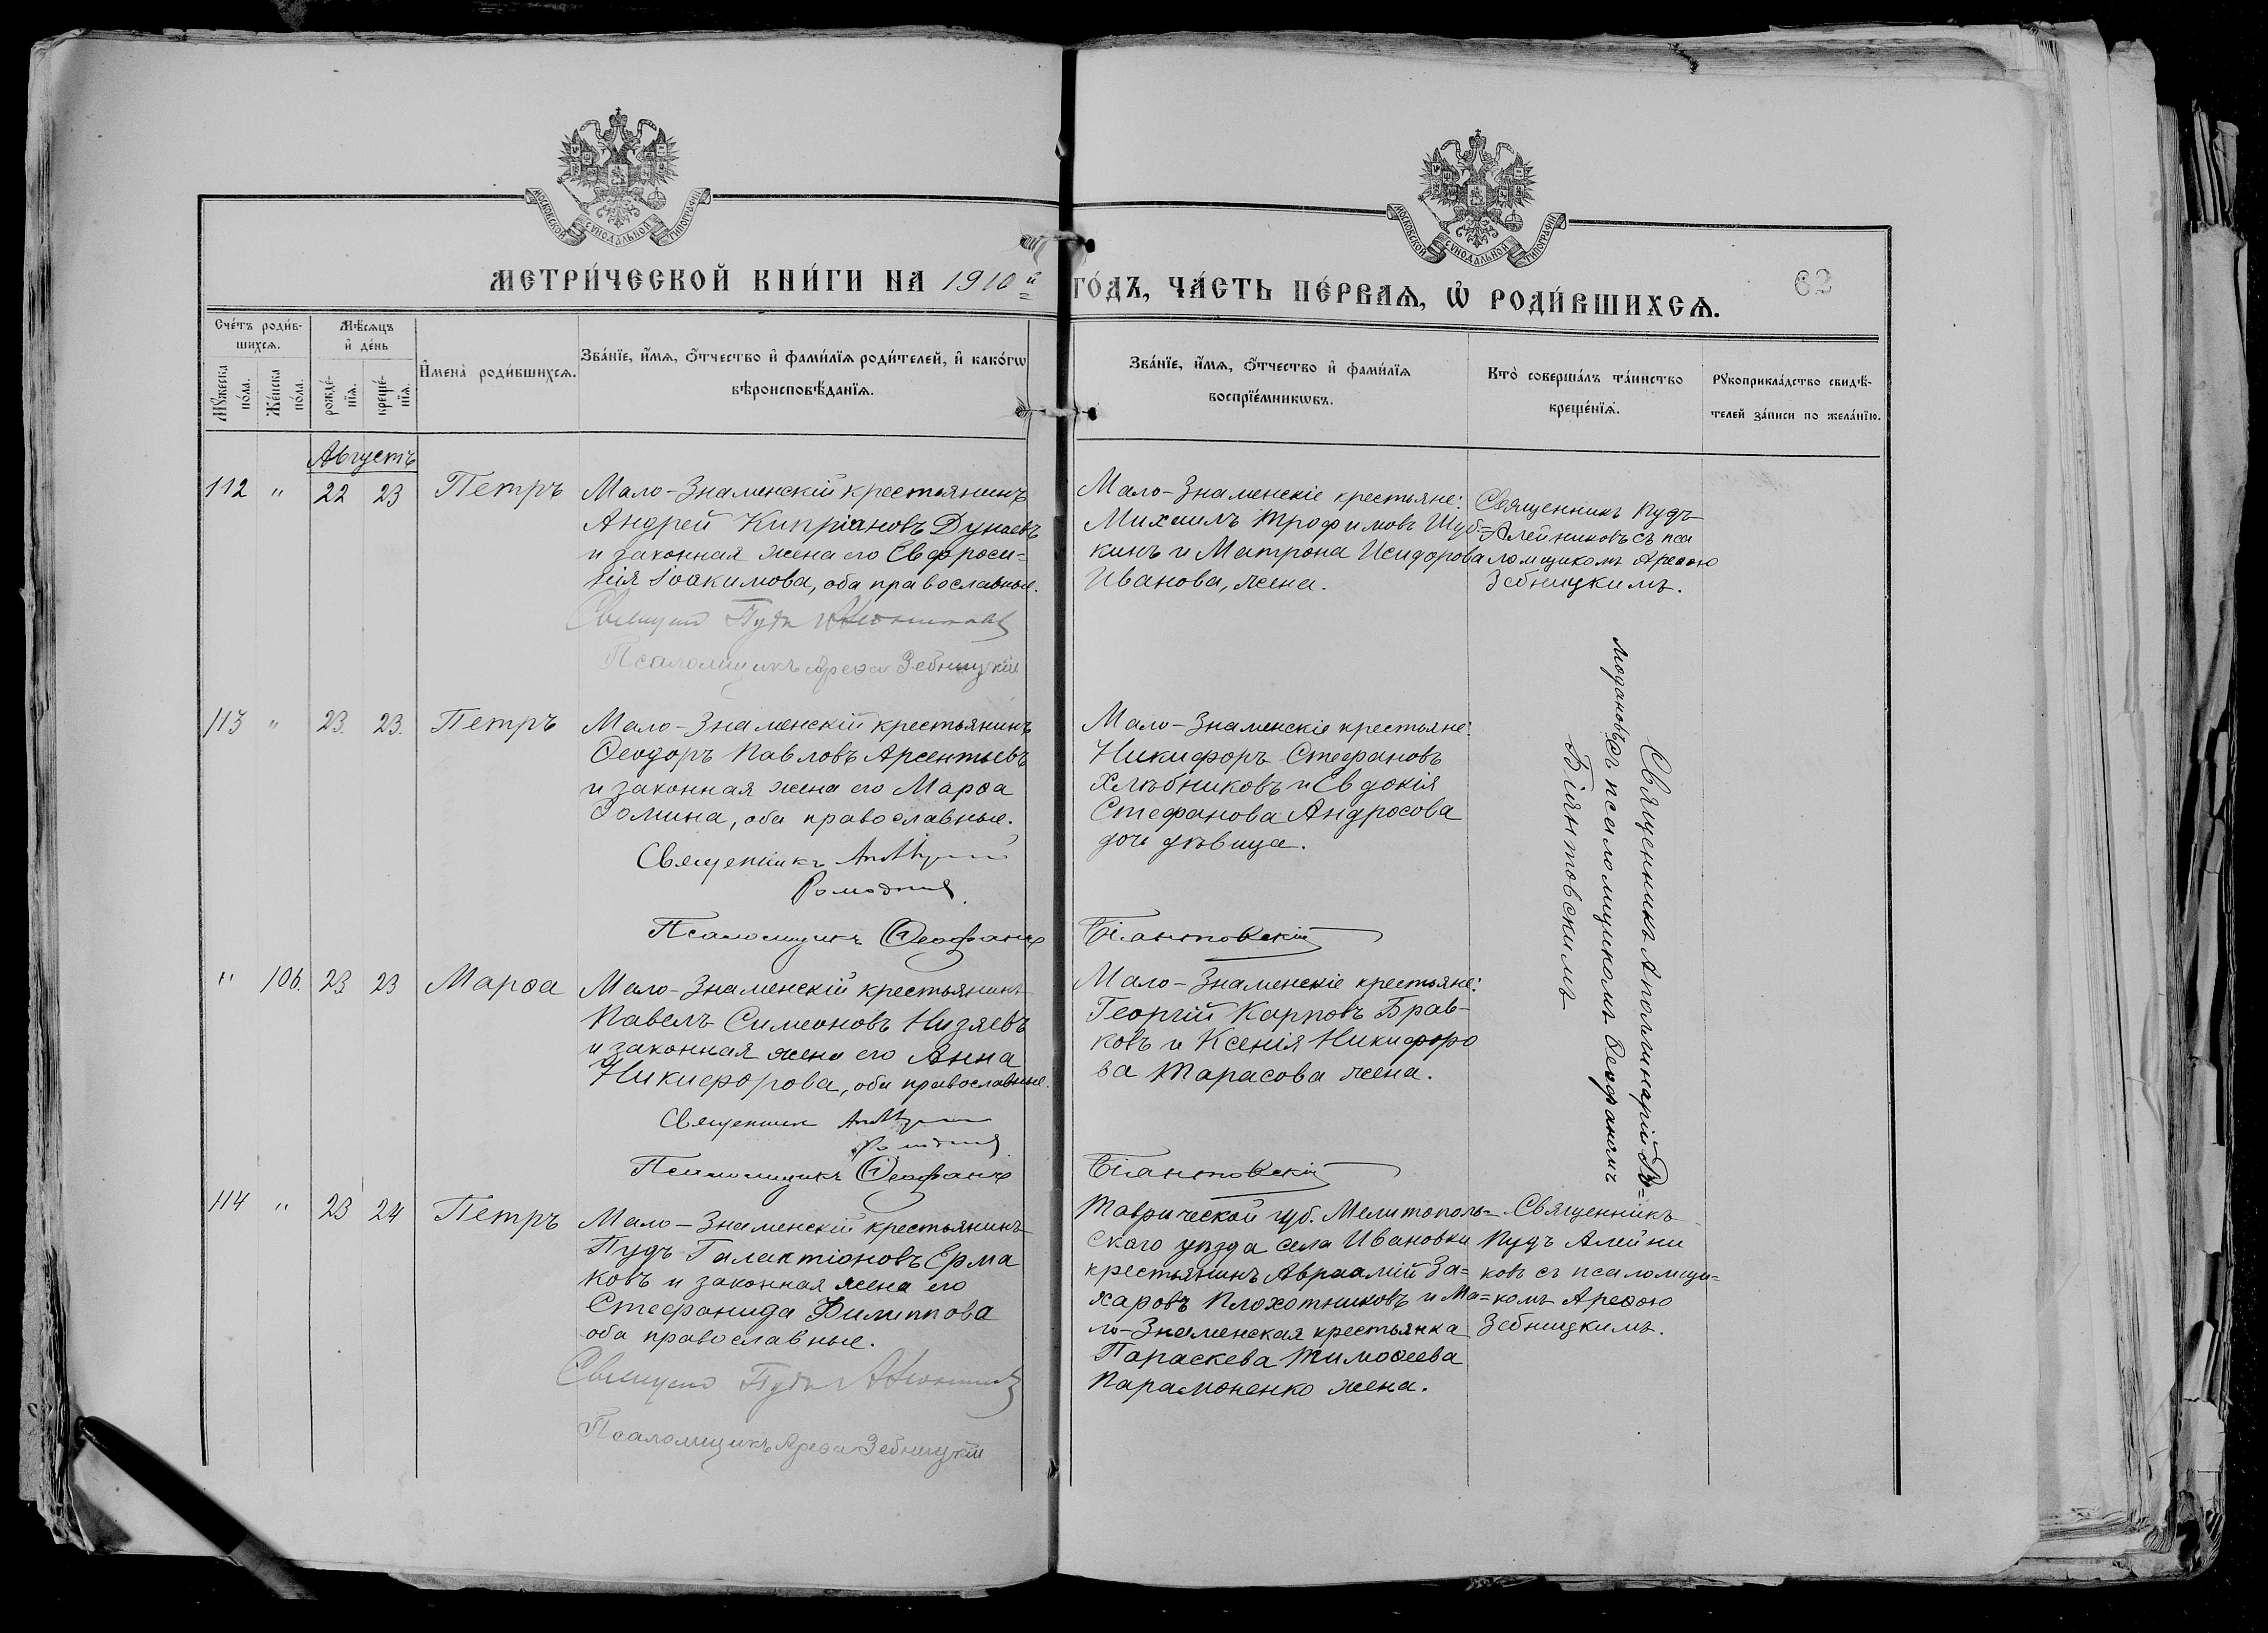 МОСКОВСКОЙ СѴНОДАЛЬНОЙ ТИПОГРАФІИ
МОСКОВСКОЙ СѴНОДАЛЬНОЙ ТИПОГРАФІИ
МЕТРИ́ЧЕСКОЙ КНИ́ГИ НА 1910 й ГО́ДЪ, ЧА́СТЬ ПЕ́РВАѦ, Ѽ РОДИ́ВШИХСѦ.
62
Сче́тъ роди́в-
шихсѧ.
Мѣ́сѧцъ
и҆ де́нь
Мꙋ́жеска по́ла.
Же́нска по́ла.
рожде́-
нїѧ.
креще́-
нїѧ.
И҆мена̀ роди́вшихсѧ.
Зва́нїе, и҆́мѧ, ѻ҆́тчество и҆ фами́лїѧ роди́телей, и҆ како́гѡ
вѣроисповѣ́данїѧ.
Зва́нїе, и҆́мѧ, ѻ҆́тчество и҆ фами́лїѧ
воспрїе́мникѡвъ.
Кто̀ соверша́лъ та́инство
креще́нїѧ.
Рꙋкоприкла́дство свидѣ́-
телей за́писи по жела́нїю.
Августъ
112 " 22 23 Петръ
Мало-Знаменскій крестьянинъ
Андрей Кипріановъ Дунаевъ
и законная жена его Евфроси-
нія Іоакимова, оба православные.
Пудъ
Псаломщикъ Арефа Зебницкій
Мало-Знаменскіе крестьяне:
Михаилъ Трофимовъ Шуб-
кинъ и Матрона Исидорова
Иванова, жена.
Священникъ Пудъ
Алейниковъ съ пса
ломщикомъ Арефою
Зебницкимъ.
113 " 23. 23. Петръ
Мало-Знаменскій крестьянинъ
Ѳеодоръ Павловъ Арсентьевъ
и законная жена его Марѳа
Ѳомина, оба православные.
Священникъ
Псаломщикъ Ѳеофанъ Біянтовскій
Мало-Знаменскіе крестьяне:
Никифоръ Стефановъ
Хлѣбниковъ и Евдокія
Стефанова Андросова
дочь дѣвица.
Священникъ Аполлинарій Ро=
модановъ съ псаломщикомъ Ѳеофаномъ
Біянтовскимъ
" 106. 23 23 Марѳа
Мало-Знаменскій крестьянинъ
Павелъ Симеоновъ Низяевъ
и законная жена его Анна
Никифорова, оба православные.
Священникъ
Псаломщикъ Ѳеофанъ Біянтовскій
Мало-Знаменскіе крестьяне:
Георгій Карповъ Брав-
ковъ и Ксенія Никифоро
ва Тарасова жена.
114 " 23 24 Петръ
Мало-Знаменскій крестьянинъ
Пудъ Галактіоновъ Ерма
ковъ и законная жена его
Стефанида Филиппова
оба православные.
Пудъ
Псаломщикъ Арефа Зебницкій
Таврической губ. Мелитополь=
скаго уѣзда села Ивановки
крестьянинъ Авраамій За=
харовъ Плохотниковъ и Ма=
ло-Знаменская крестьянка
Параскева Тимоѳеева
Парамоненко жена.
Священникъ
Пудъ Алейни
ковъ съ псаломщи=
комъ Арефою
Зебницкимъ.